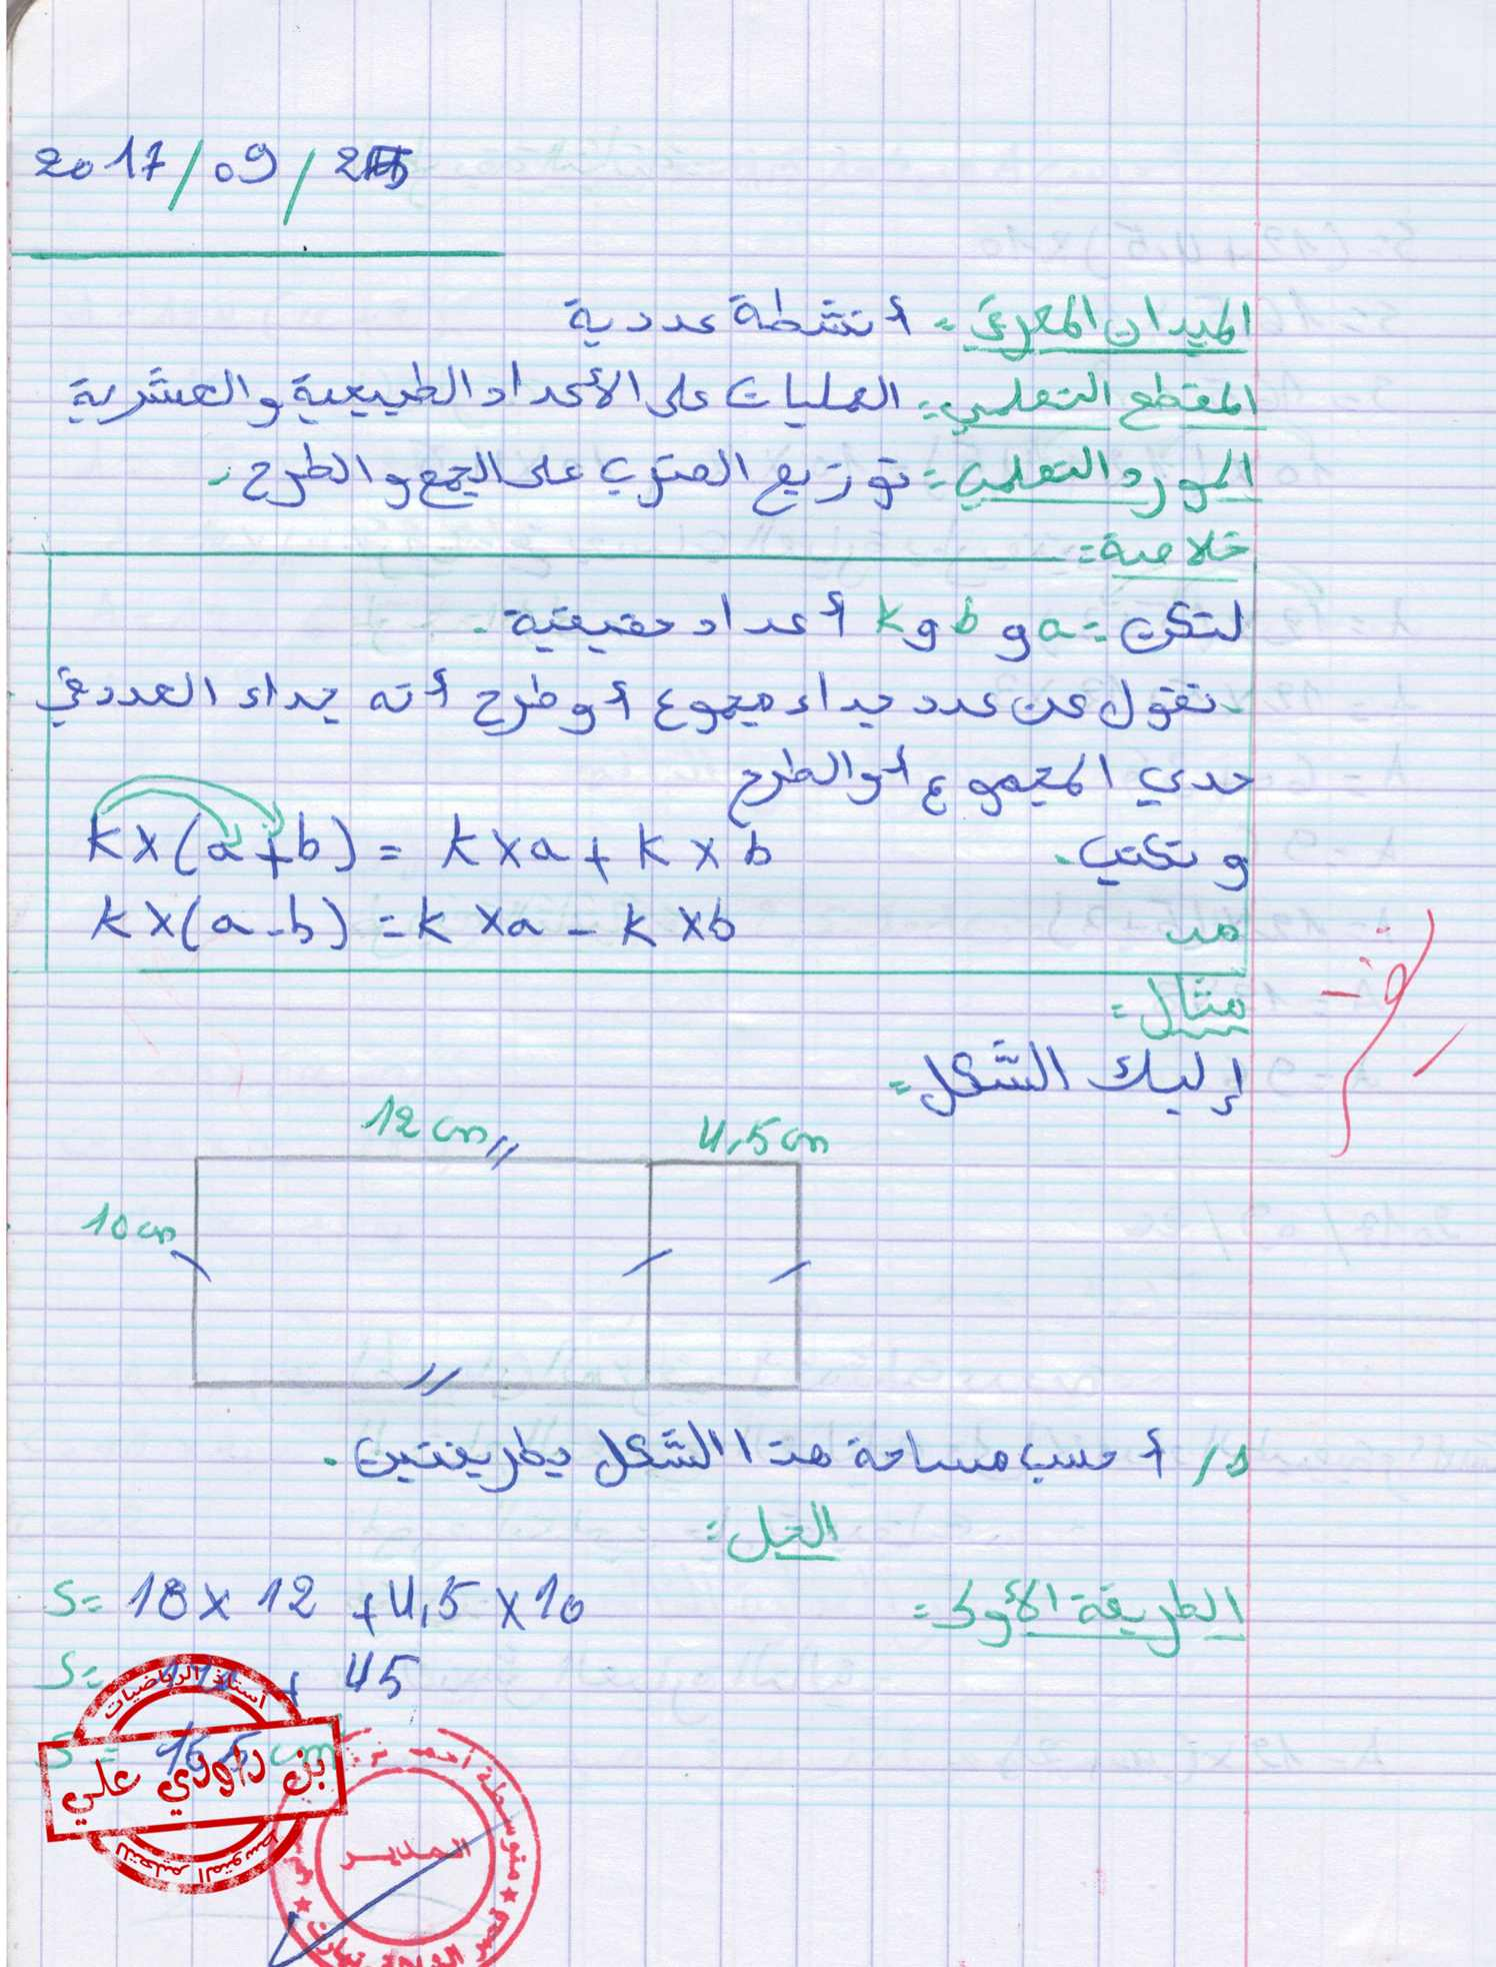 2017/09/25
الميدان المعرفي: أنشطة عددية
المقطع التعلمي: العمليات على الأعداد الطبيعية والعشرية
المورد التعلمي: توزيع الضرب على الجمع والطرح.
خلاصة:
لتكن: a و b و k أعداد حقيقية.
نقول عن عدد جداء مجموع أو طرح أنه جداء العدد في
حدي المجموع أو الطرح
ونكتب. k×(a+b) = k×a + k×b
k×(a-b) = k×a - k×b
مثال:
إليك الشكل:
12 cm 4,5 cm
10 cm
1/ أحسب مساحة هذا الشكل بطريقتين.
الحل:
الطريقة الأولى: S= 10 × 12 + 4,5 × 10
S= + 45
S = 165 cm
أستاذ الرياضيات
بن داودي علي
للتعليم المتوسط
متوسطة أحمد
المدير